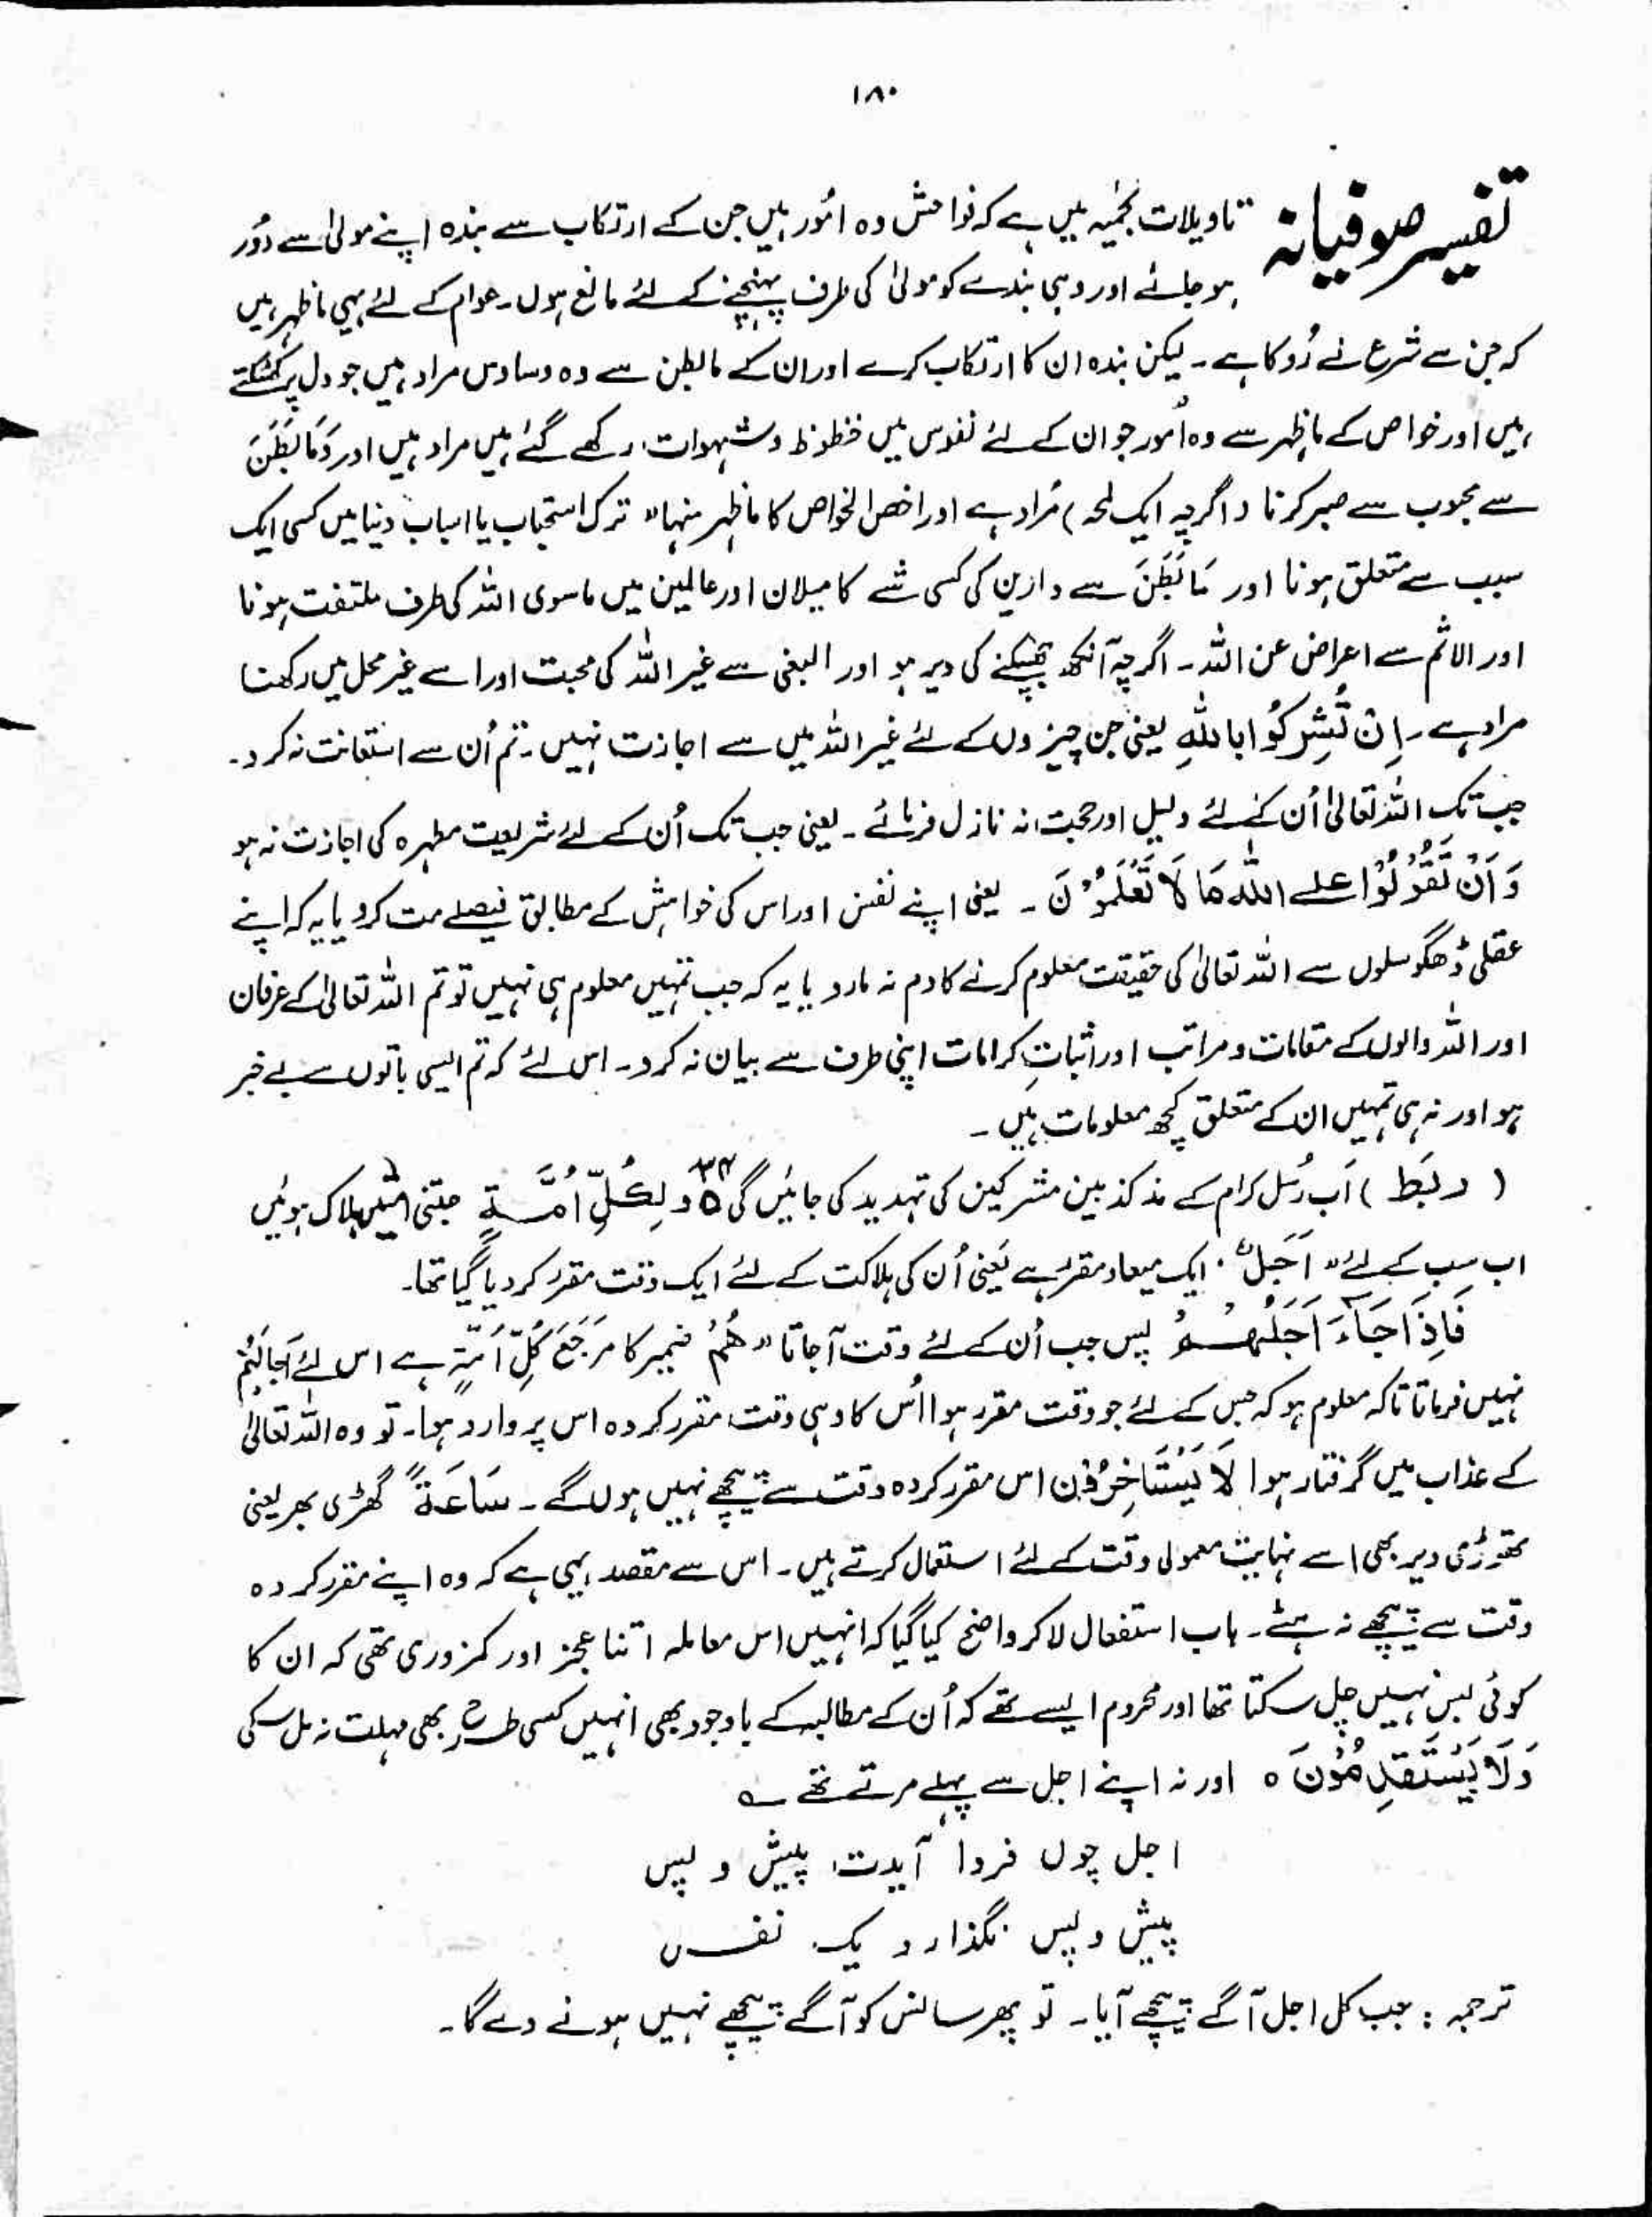 ۱۸۰
تفسیر صوفیانہ
تاویلات نجمیہ میں ہے کہ فواحش وہ امُور ہیں جن کے ارتکاب سے بندہ اپنے مولیٰ سے دُور
ہو جائے اور وہی بندے کو مولیٰ کی طرف پہنچنے کے لئے مانع ہوں۔ عوام کے لئے یہی ماظہر ہیں
کہ جن سے شرع نے رُوکا ہے۔ لیکن بندہ ان کا ارتکاب کرے اور ان کے مابطن سے وہ وساوس مراد ہیں جو دل پر کھٹکتے
ہیں اور خواص کے ماظہر سے وہ اُمور جو ان کے لئے نفوس میں حظوظ وشہوات رکھے گئے ہیں مراد ہیں اور وَمَا بَطَنَ
سے محبوب سے صبر کرنا (اگرچہ ایک لمحہ) مُراد ہے اور اخص الخواص کا ماظہر منہا" ترک استحباب یا اسباب دنیا میں کسی ایک
سبب سے متعلق ہونا اور مَا بَطَنَ سے دارین کی کسی شے کا میلان اور عالمین میں ماسوی اللہ کی طرف ملتفت ہونا
اور الاثم سے اعراض عن اللہ۔ اگرچہ آنکھ جھپکنے کی دیر ہو اور البغی سے غیر اللہ کی محبت اور اسے غیر محل میں رکھنا
مراد ہے۔ اِنْ تُشِرِکُوْا بِاللّٰہِ یعنی جن چیزوں کے لئے غیر اللہ میں سے اجازت نہیں۔ تم اُن سے استعانت نہ کرو۔
جب تک اللہ تعالیٰ اُن کے لئے دلیل اور حجت نہ نازل فرمائے۔ یعنی جب تک اُن کے لئے شریعت مطہرہ کی اجازت نہ ہو
وَ اَنْ تَقُوْلُوْا علے اللّٰہِ مَا لَا تَعْلَمُوْنَ ۔ یعنی اپنے نفس اور اس کی خواہش کے مطابق فیصلے مت کرو یا یہ کہ اپنے
عقلی ڈھگوسلوں سے اللہ تعالیٰ کی حقیقت معلوم کرنے کا دم نہ مارو یا یہ کہ جب تمہیں معلوم ہی نہیں تو تم اللہ تعالیٰ کے عرفان
اور اللہ والوں کے مقامات و مراتب اور اثباتِ کرامات اپنی طرف سے بیان نہ کرو۔ اس لئے کہ تم ایسی باتوں سے بے خبر
ہو اور نہ ہی تمہیں ان کے متعلق کچھ معلومات ہیں۔
( ربَط ) اَب رُسل کرام کے مذکذبین مشرکین کی تہدید کی جائیں گی ۳۴ ہ وَ لِکُلِّ اُمَّۃٍ جتنی امتیں ہلاک ہوئیں
اب سب کے لئے " اَجَلٌ" ایک میعاد مقرر ہے یَعنی اُن کی ہلاکت کے لئے ایک وقت مقرر کر دیا گیا تھا۔
فَاِذَا جَآءَ اَجَلُہُمْ پس جب اُن کے لئے وقت آجاتا " ھُمْ ضمیر کا مرَجَع کُلّ اُمۃٍ ہے اس لئے آجالہُمْ
نہیں فرماتا تاکہ معلوم ہو کہ جس کے لئے جو وقت مقرر ہوا اُس کا وہی وقت مقرر کردہ اس پر وارد ہوا۔ تو وہ اللہ تعالیٰ
کے عذاب میں گرفتار ہوا لَا یَسْتَاخِرُوْن اس مقرر کردہ وقت سے پیچھے نہیں ہوں گے۔ سَاعَۃً گھڑی بھر یعنی
تھوڑی دیر بھی اسے نہایت معمولی وقت کے لئے استعمال کرتے ہیں۔ اس سے مقصد یہی ہے کہ وہ اپنے مقرر کردہ
وقت سے پیچھے نہ ہٹے۔ باب استفعال لا کر واضح کیا گیا کہ انہیں اس معاملہ اتنا عجز اور کمزوری تھی کہ ان کا
کوئی بس نہیں چل سکتا تھا اور محروم ایسے تھے کہ اُن کے مطالبہ کے باوجود بھی انہیں کسی طرح بھی مہلت نہ مل سکی
وَلَا یَسْتَقْدِمُوْنَ ہ اور نہ اپنے اجل سے پہلے مرتے تھے ؎
اجل چوں فردا آیدت پیش و پس
پیش و پس نگذارد یک نفس
ترجمہ : جب کل اجل آگے پیچھے آیا۔ تو پھر سانس کو آگے پیچھے نہیں ہونے دے گا۔